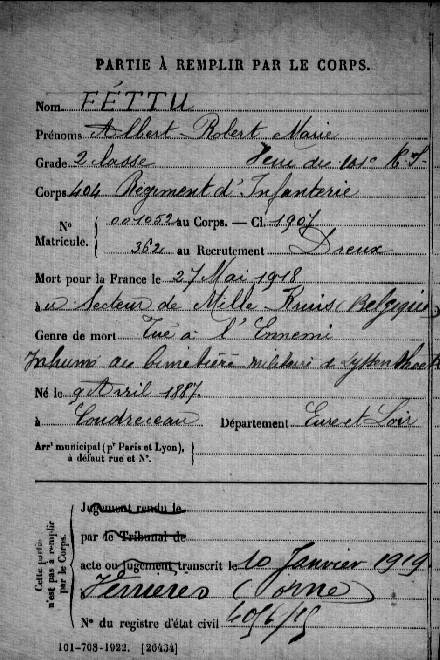 PARTIE À REMPLIR PAR LE CORPS.
Nom FÉTTU
Prénoms Albert Robert Marie
Grade 2 classe Venu du
Corps 404 Régiment d'Infanterie
N° Matricule. { 001052 au Corps. — Cl. 1907
362 au Recrutement Dreux
Mort pour la France le 27 Mai 1918
à u Secteur de Mille Kruis (Belgique)
Genre de mort Tué à l'Ennemi
Inhumé au Cimetière militaire de Lyssenthoek
Né le 9 Avril 1887
à Coudreceau Département Eure et Loir
Arrt municipal (pr Paris et Lyon), à défaut rue et N°. }
Cette partie n'est pas à remplir par le Corps.
Jugement rendu le
par le Tribunal de
acte ou jugement transcrit le 10 Janvier 1919
Ferrières (Orne)
N° du registre d'état civil
101-708-1922. [26434]